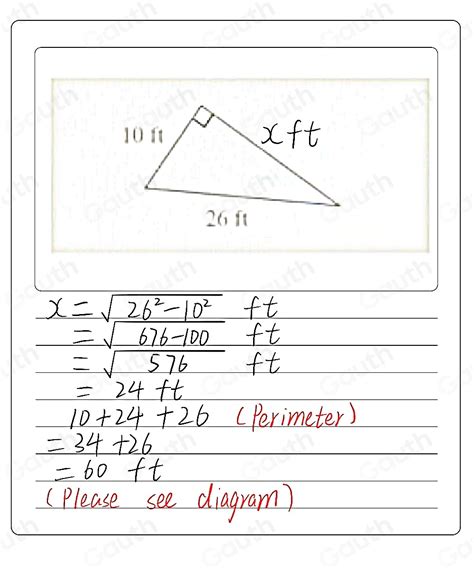 10 ft
x ft
26 ft
x = √26²-10² ft
= √676-100 ft
= √576 ft
= 24 ft
10+24+26 (Perimeter)
= 34+26
= 60 ft
(Please see diagram)
Gauth